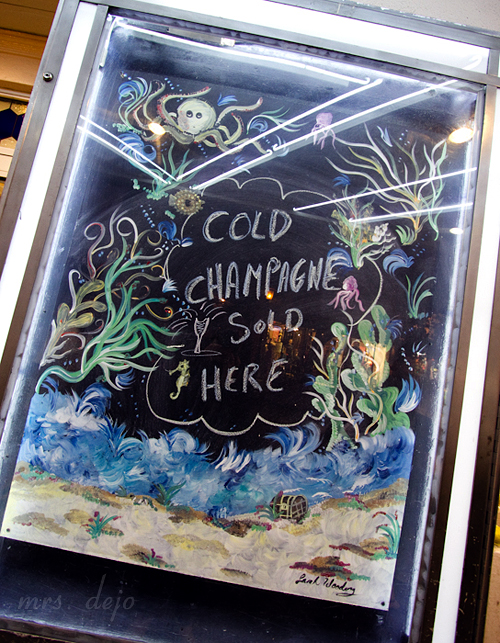 COLD
CHAMPAGNE
SOLD
HERE
mrs. dejo